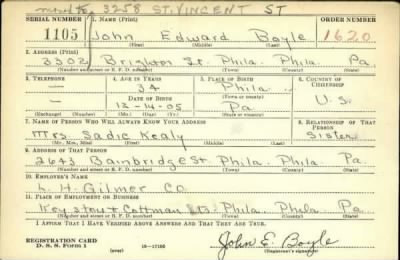 moved to 3258 St. Vincent St
SERIAL NUMBER 1. NAME (Print) ORDER NUMBER
1105 John Edward Boyle 1620
(First) (Middle) (Last)
2. ADDRESS (Print)
3302 Brighton St. Phila. Phila. Pa.
(Number and street or R. F. D. number) (Town) (County) (State)
3. TELEPHONE 4. AGE IN YEARS 5. PLACE OF BIRTH 6. COUNTRY OF CITIZENSHIP
— 34 Phila.
DATE OF BIRTH (Town or county)
— 12-14-05 Pa U.S.
(Exchange) (No.) (Mo.) (Day) (Yr.) (State or country)
7. NAME OF PERSON WHO WILL ALWAYS KNOW YOUR ADDRESS 8. RELATIONSHIP OF THAT PERSON
Mrs. Sadie Kealy Sister
(Mr., Mrs., Miss) (First) (Middle) (Last)
9. ADDRESS OF THAT PERSON
2643 Bainbridge St. Phila. Phila. Pa.
(Number and street or R. F. D. number) (Town) (County) (State)
10. EMPLOYER'S NAME
L. H. Gilmer Co
11. PLACE OF EMPLOYMENT OR BUSINESS
Keystone & Cottman Sts. Phila. Phila. Pa
(Number and street or R. F. D. number) (Town) (County) (State)
I AFFIRM THAT I HAVE VERIFIED ABOVE ANSWERS AND THAT THEY ARE TRUE.
REGISTRATION CARD
D. S. S. Form 1 (over) 16—17105 John E. Boyle
(Registrant's signature)